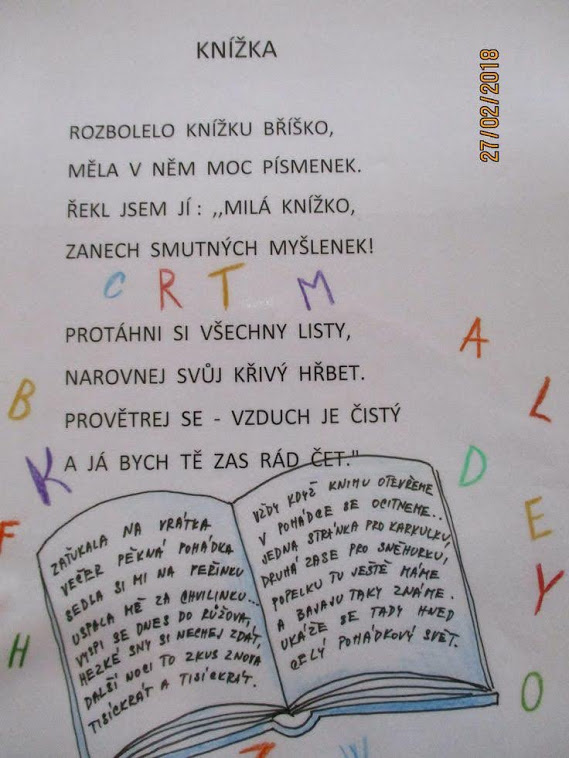 KNÍŽKA
27/02/2018
ROZBOLELO KNÍŽKU BŘÍŠKO,
MĚLA V NĚM MOC PÍSMENEK.
ŘEKL JSEM JÍ : ,,MILÁ KNÍŽKO,
ZANECH SMUTNÝCH MYŠLENEK!
C R T M
PROTÁHNI SI VŠECHNY LISTY,
A
NAROVNEJ SVŮJ KŘIVÝ HŘBET.
B
L
PROVĚTREJ SE - VZDUCH JE ČISTÝ
K
A JÁ BYCH TĚ ZAS RÁD ČET."
D
E
F
Y
H
O
ZAŤUKALA NA VRÁTKA
VEČER PĚKNÁ POHÁDKA
SEDLA SI MI NA PEŘINKU
USPALA MĚ ZA CHVILINKU...
VYSPI SE DNES DO RŮŽOVA,
HEZKÉ SNY SI NECHEJ ZDÁT,
DALŠÍ NOCI TO ZKUS ZNOVA
TISÍCKRÁT A TISÍCKRÁT.
VŽDY KDYŽ KNIHU OTEVŘEME
V POHÁDCE SE OCITNEME..
JEDNA STRÁNKA PRO KARKULKU,
DRUHÁ ZASE PRO SNĚHURKU,
POPELKU TU JEŠTĚ MÁME
A BAJAJU TAKY ZNÁME.
UKÁŽE SE TADY HNED
CELÝ POHÁDKOVÝ SVĚT.